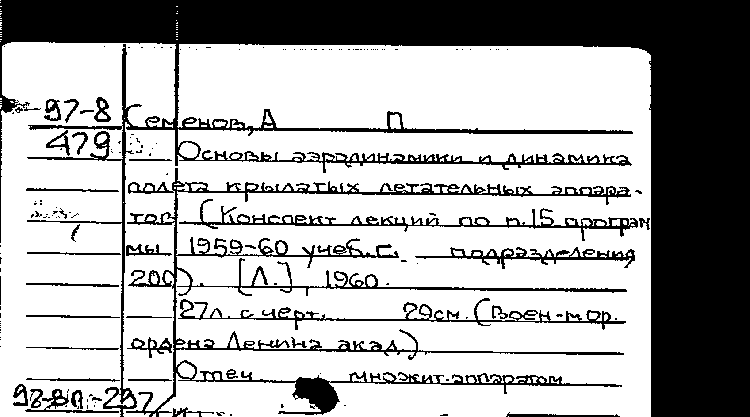 97-8 Семенов, А П
479 Основы аэродинамики и динамика
полета крылатых летательных аппара-
тов (Конспект лекций по п.15 програм
мы 1959-60 учеб.г. подразделения
200). [Л.], 1960.
27л. с черт. 29см. (Воен-мор.
ордена Ленина акад.)
Отпеч множит.аппаратом